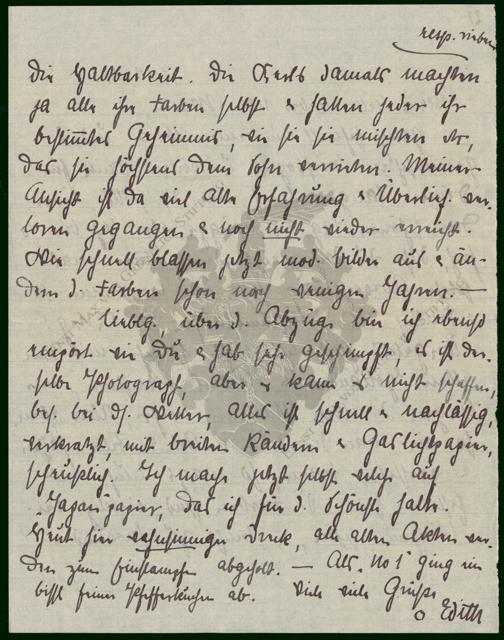 resp. rieben
die Haltbarkeit. Die Kerls damals machten
ja alle ihre Farben selbst & hatten jeder ihr
bestimmtes Geheimnis, wie sie sie mischten etc,
das sie höchstens dem Sohn verrieten. Meiner
Ansicht ist da viel alte Erfahrung & Überlief. ver-
loren gegangen & noch nicht wieder erreicht.
Wie schnell blassen jetzt mod. Bilder aus & än-
dern d. Farben schon nach wenigen Jahren. —
Liebstg, über d. Abzüge bin ich ebenso
empört wie Du & hab sehr geschimpft es ist der-
selbe Photograph, aber er kann es nicht schaffen,
bes. bei ds. Wetter, Alles ist schnell & nachlässig,
verkratzt, mit breiten Rändern & Gaslichtpapier,
scheußlich. Ich mache jetzt selbst welche auf
Japanpapier, das ich für d. Schönste halte.
Heut hier Druck, alle alten Akten wer-
den zum Einstampfen abgeholt. — Als "No 1" ging ein
bissl feiner Pfefferkuchen ab. Viele viele Grüße
Edith